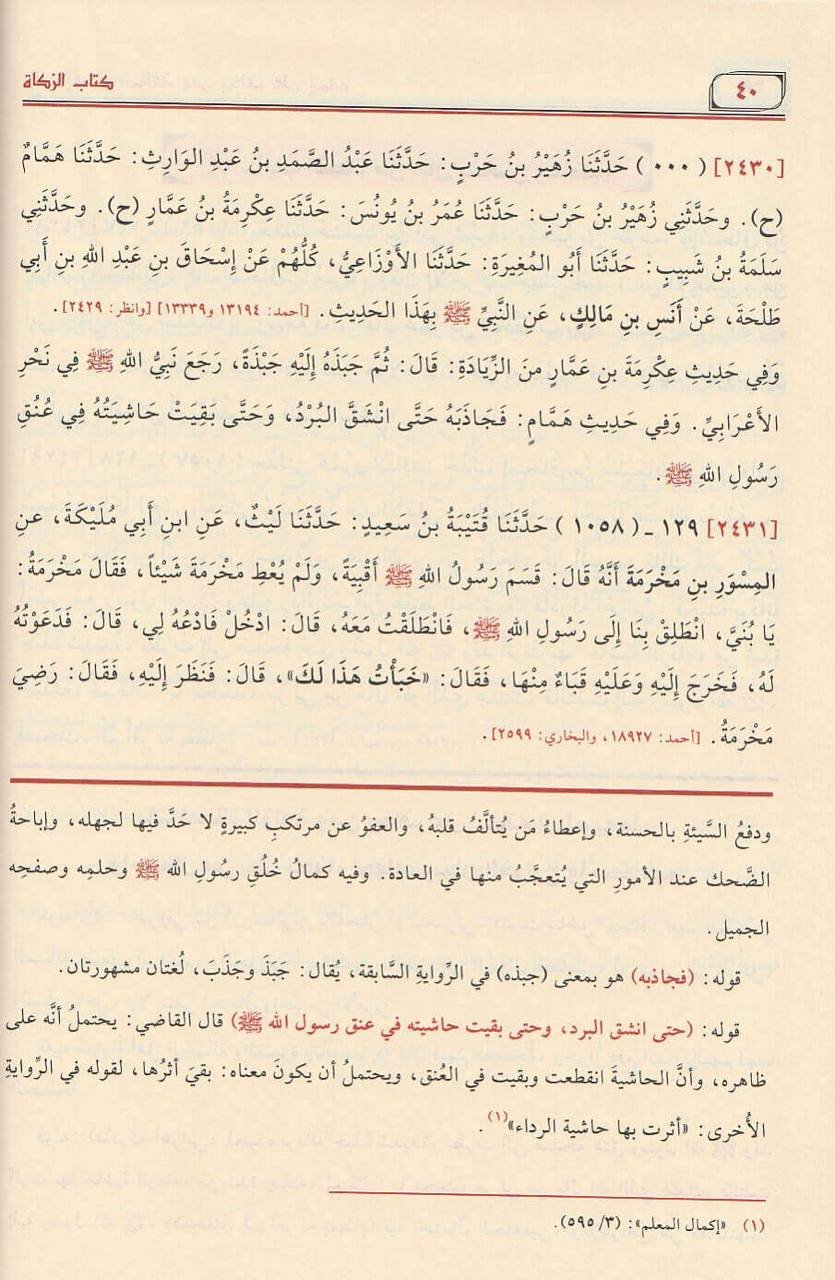 ٤٠
كتاب الزكاة
[٢٤٣٠] (٠٠٠) حَدَّثَنَا زُهَيْرُ بنُ حَرْبٍ: حَدَّثَنَا عَبْدُ الصَّمَدِ بنُ عَبْدِ الوَارِثِ: حَدَّثَنَا هَمَّامٌ
(ح). وحَدَّثَنِي زُهَيْرُ بنُ حَرْبٍ: حَدَّثَنَا عُمَرُ بنُ يُونُسَ: حَدَّثَنَا عِكْرِمَةُ بنُ عَمَّارٍ (ح). وحَدَّثَنِي
سَلَمَةُ بنُ شَبِيبٍ: حَدَّثَنَا أَبُو المُغِيرَةِ: حَدَّثَنَا الأَوْزَاعِيُّ، كُلُّهُمْ عَنْ إِسْحَاقَ بنِ عَبْدِ اللهِ بنِ أَبِي
طَلْحَةَ، عَنْ أَنَسِ بنِ مَالِكٍ، عَنِ النَّبِيِّ ﷺ بِهَذَا الحَدِيثِ. [أحمد: ١٣١٩٤ و١٣٣٣٩] [وانظر: ٢٤٢٩].
وَفِي حَدِيثِ عِكْرِمَةَ بنِ عَمَّارٍ مِنَ الزِّيَادَةِ: قَالَ: ثُمَّ جَبَذَهُ إِلَيْهِ جَبْذَةً، رَجَعَ نَبِيُّ اللهِ ﷺ فِي نَحْرِ
الأَعْرَابِيِّ. وَفِي حَدِيثِ هَمَّامٍ: فَجَاذَبَهُ حَتَّى انْشَقَّ البُرْدُ، وَحَتَّى بَقِيَتْ حَاشِيَتُهُ فِي عُنُقِ
رَسُولِ اللهِ ﷺ.
[٢٤٣١] ١٢٩ ـ (١٠٥٨) حَدَّثَنَا قُتَيْبَةُ بنُ سَعِيدٍ: حَدَّثَنَا لَيْثٌ، عَنِ ابنِ أَبِي مُلَيْكَةَ، عَنِ
المِسْوَرِ بنِ مَخْرَمَةَ أَنَّهُ قَالَ: قَسَمَ رَسُولُ اللهِ ﷺ أَقْبِيَةً، وَلَمْ يُعْطِ مَخْرَمَةَ شَيْئاً، فَقَالَ مَخْرَمَةُ:
يَا بُنَيَّ، انْطَلِقْ بِنَا إِلَى رَسُولِ اللهِ ﷺ، فَانْطَلَقْتُ مَعَهُ، قَالَ: ادْخُلْ فَادْعُهُ لِي، قَالَ: فَدَعَوْتُهُ
لَهُ، فَخَرَجَ إِلَيْهِ وَعَلَيْهِ قَبَاءٌ مِنْهَا، فَقَالَ: «خَبَأْتُ هَذَا لَكَ»، قَالَ: فَنَظَرَ إِلَيْهِ، فَقَالَ: رَضِيَ
مَخْرَمَةُ. [أحمد: ١٨٩٢٧، والبخاري: ٢٥٩٩].
ودفعُ السَّيئةِ بالحسنة، وإعطاءُ مَن يُتألَّفُ قلبهُ، والعفوُ عن مرتكبِ كبيرةٍ لا حَدَّ فيها لجهله، وإباحةُ
الضَّحك عند الأمورِ التي يُتعجَّبُ منها في العادة. وفيه كمالُ خُلُقِ رسُولِ الله ﷺ وحلمِه وصفحِه
الجميل.
قوله: (فجاذبه) هو بمعنى (جبذه) في الرِّوايةِ السَّابقة، يُقال: جَبَذَ وجَذَبَ، لُغتان مشهورتان.
قوله: (حتى انشق البرد، وحتى بقيت حاشيته في عنق رسول الله ﷺ) قال القاضي: يحتملُ أنَّه على
ظاهره، وأنَّ الحاشيةَ انقطعت وبقيت في العُنق، ويحتملُ أن يكونَ معناه: بقيَ أثرُها، لقوله في الرِّوايةِ
الأُخرى: «أثرت بها حاشية الرداء»(١).
(١) «إكمال المعلم»: (٣/ ٥٩٥).